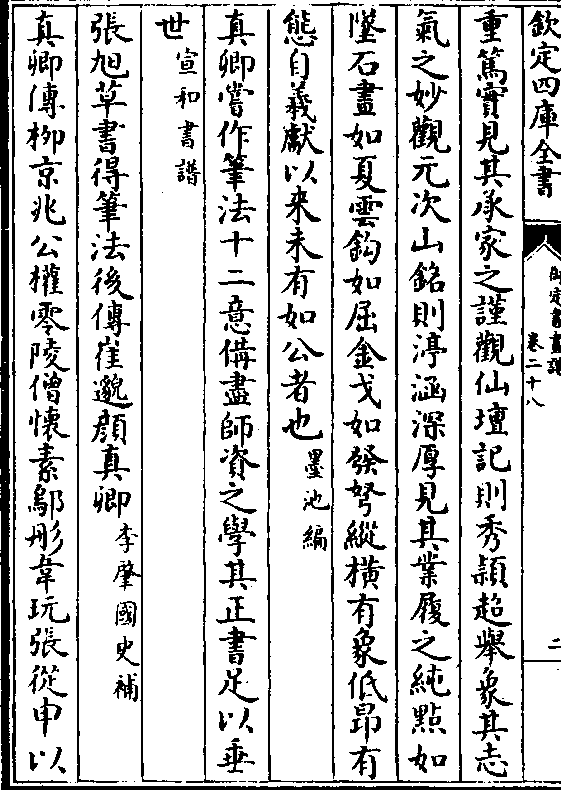 欽定四庫全書
御定書畫譜
卷二十八
二
重篤實見其承家之謹觀仙壇記則秀穎超舉象其志
氣之妙觀元次山銘則渟涵深厚見其業履之純點如
墜石畫如夏雲鈎如屈金戈如發弩縱橫有象低昻有
態自羲獻以來未有如公者也墨池編
真卿嘗作筆法十二意備盡師資之學其正書足以垂
世宣和書譜
張旭草書得筆法後傳崔邈顔真卿李肇國史補
真卿傳柳京兆公權零陵僧懷素鄔彤韋玩張從申以